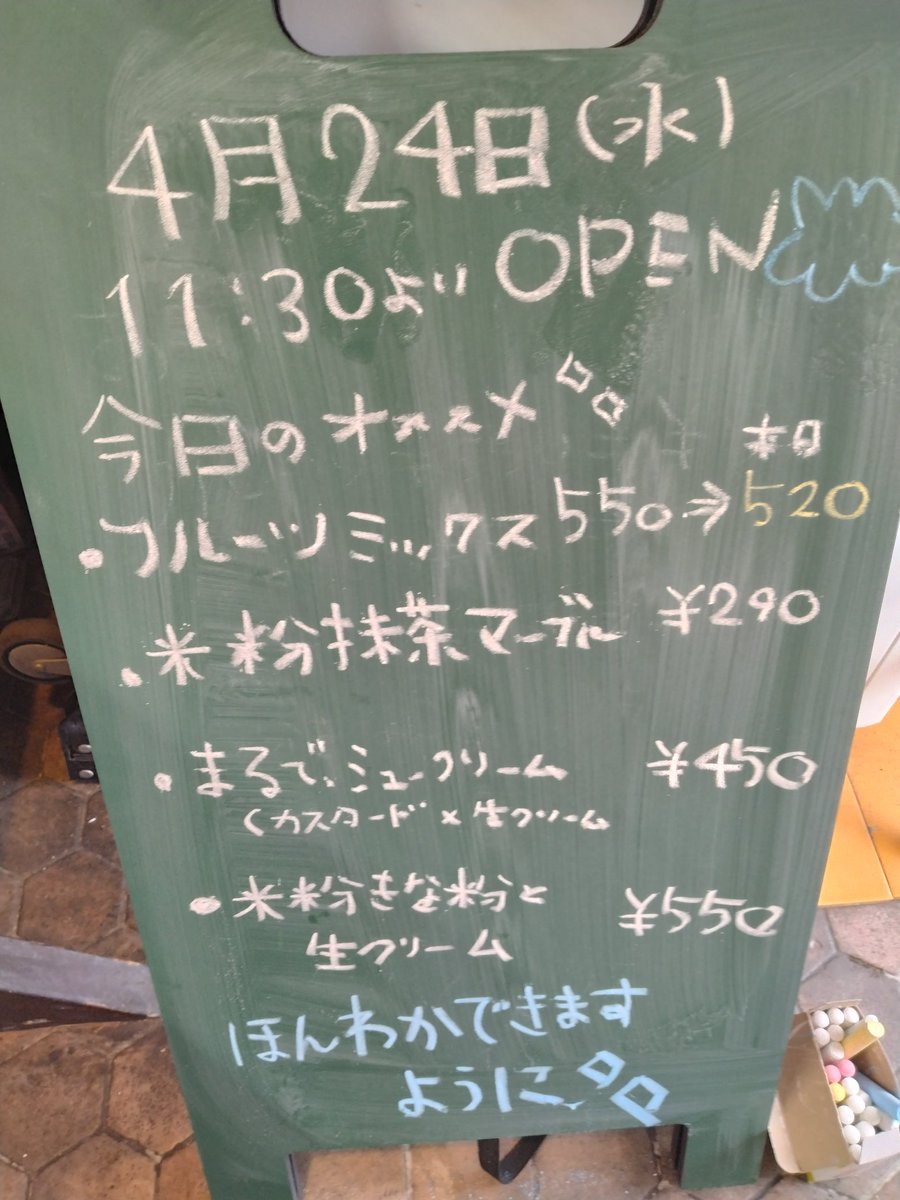 4月24日(水)
11:30より OPEN
今日のオススメ
本日
・フルーツミックス 550→520
・米粉抹茶マーブル ¥290
・まるでシュークリーム ¥450
(カスタード×生クリーム
・米粉きな粉と ¥550
生クリーム
ほんわかできます
ように